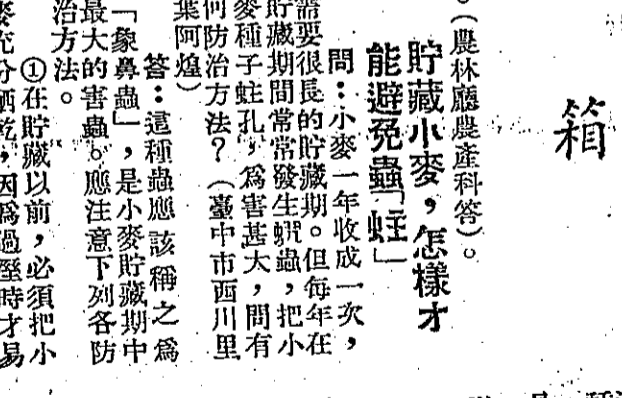 箱
。（農林廳農產科答）。
貯藏小麥，怎樣才
能避免蟲「蛀」
問：小麥一年收成一次，
需要很長的貯藏期。但每年在
貯藏期間常常發生蚜蟲，把小
麥種子蛀孔，爲害甚大，問有
何防治方法？（臺中市西川里
葉阿煌）
答：這種蟲應該稱之爲
「象鼻蟲」，是小麥貯藏期中
最大的害蟲。應注意下列各防
治方法。
①在貯藏以前，必須把小
麥充分晒乾，因爲過溼時才易